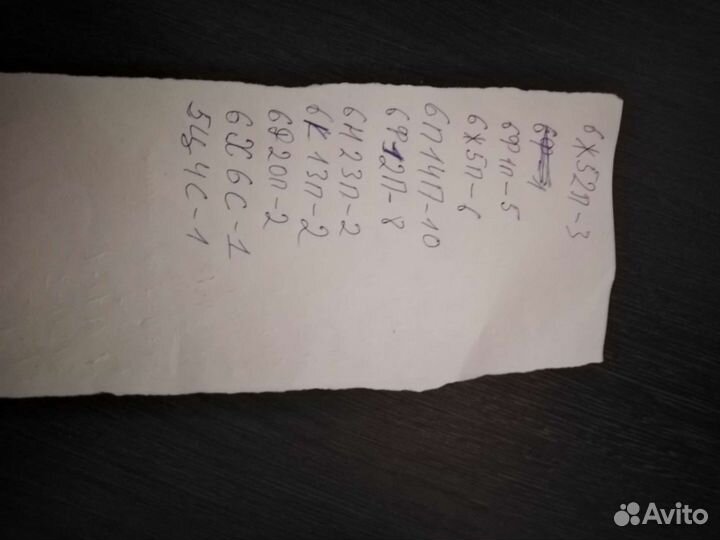 6Ж52П-3
6Ф1П-5
6Ж5П-6
6П14П-10
6Ф12П-8
6Н23П-2
6К13П-2
6Ф20П-2
6Х6С-1
5Ц4С-1
Avito